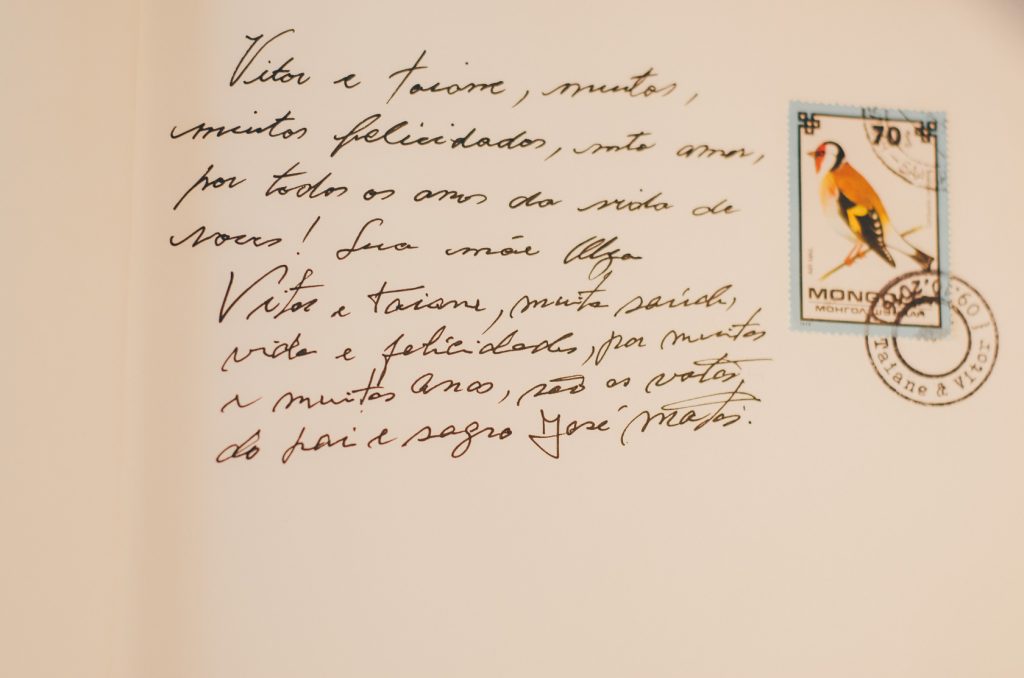 Vitor e Taiane, muitos,
muitos felicidados, mto amor,
por todos os anos da vida de
voces! Sua mãe Olga
Vitor e Taiane, muita saúde,
vida e felicidades, por muitos
e muitos anos, são os votos,
do pai e sogro José Matos.
70
MONG
МОНГОЛ
09.10.2016
Taiane & Vitor